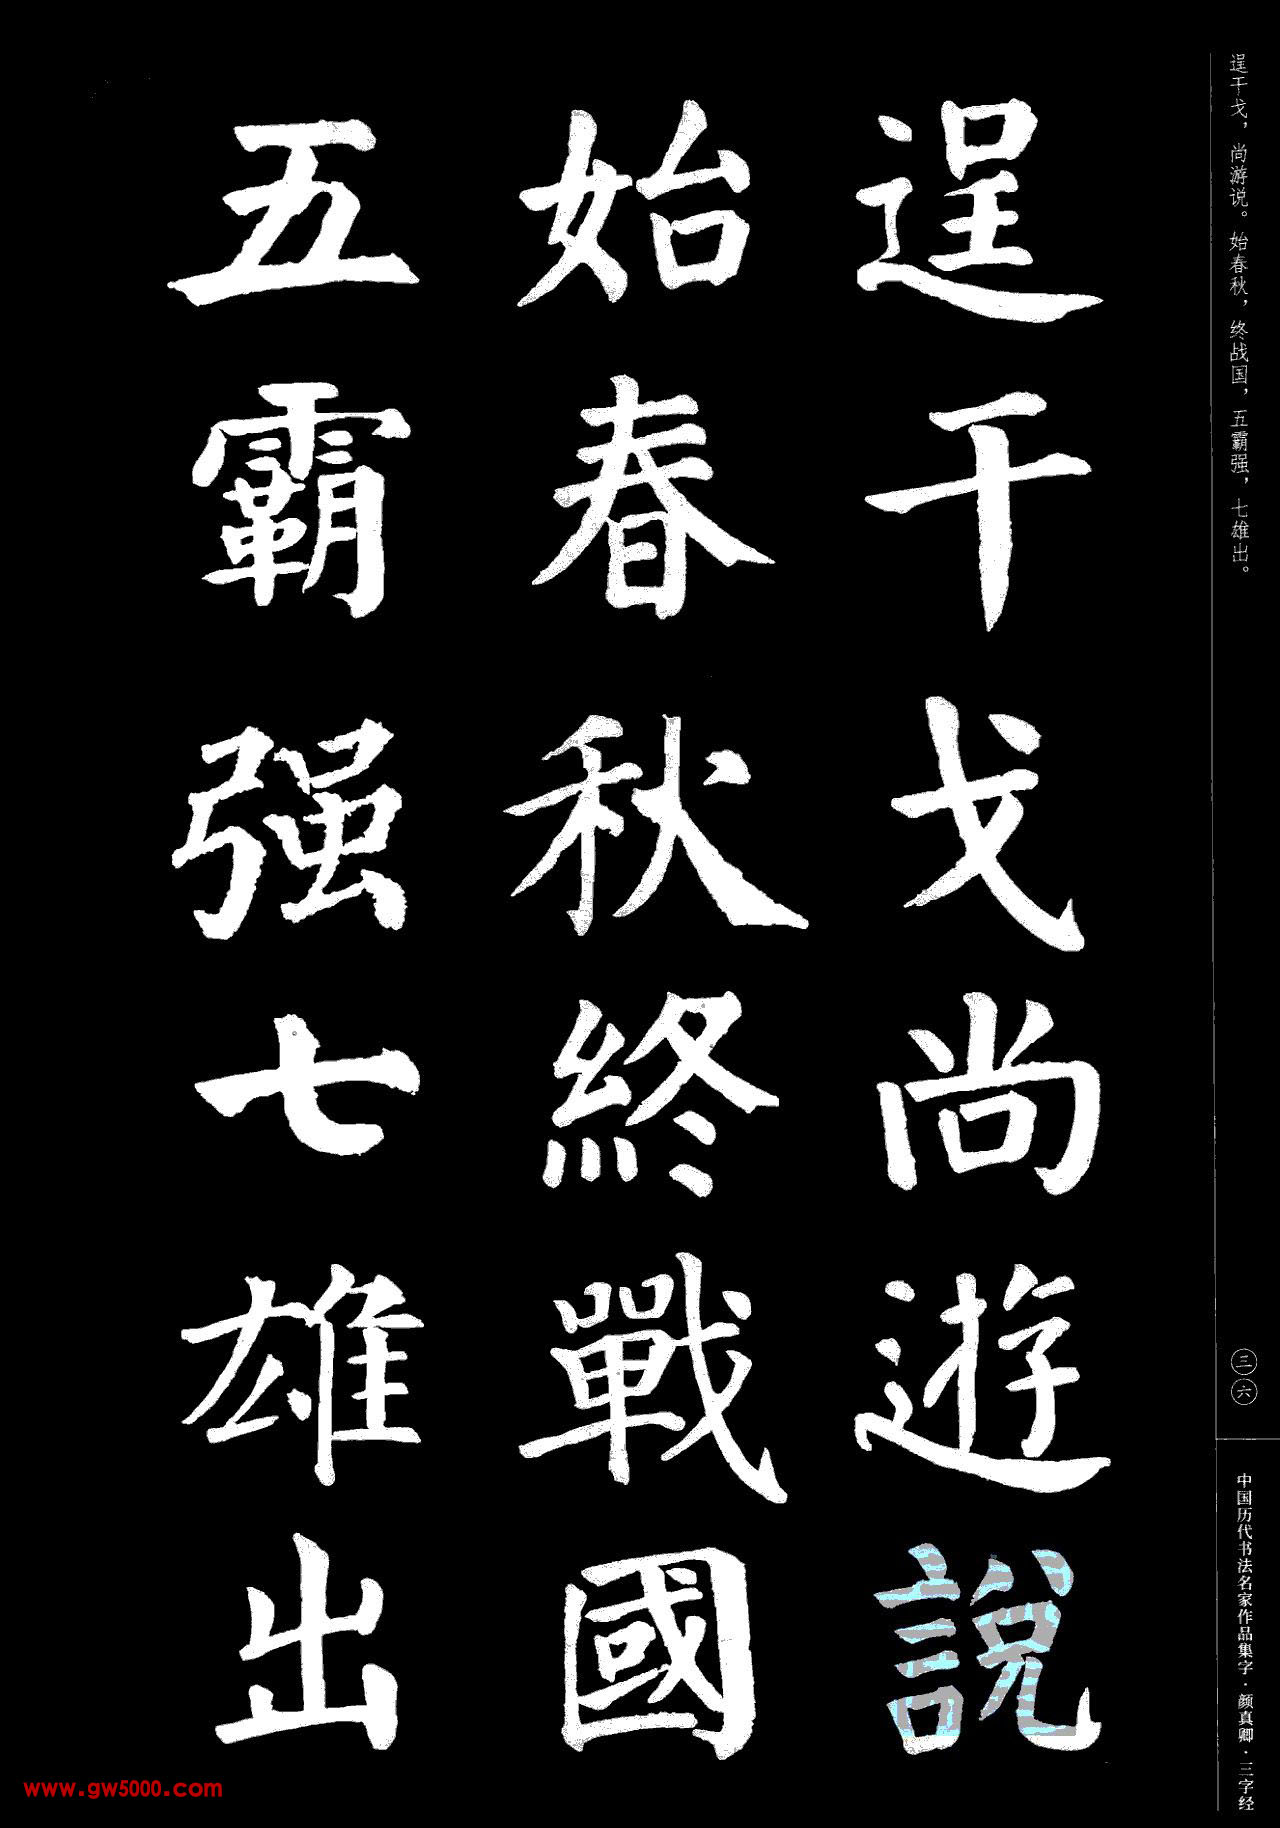 逞干戈，尚游说。始春秋，终战国，五霸强，七雄出。
三六
中国历代书法名家作品集字·颜真卿·三字经
逞干戈尚遊說
始春秋終戰國
五霸强七雄出
www.gw5000.com